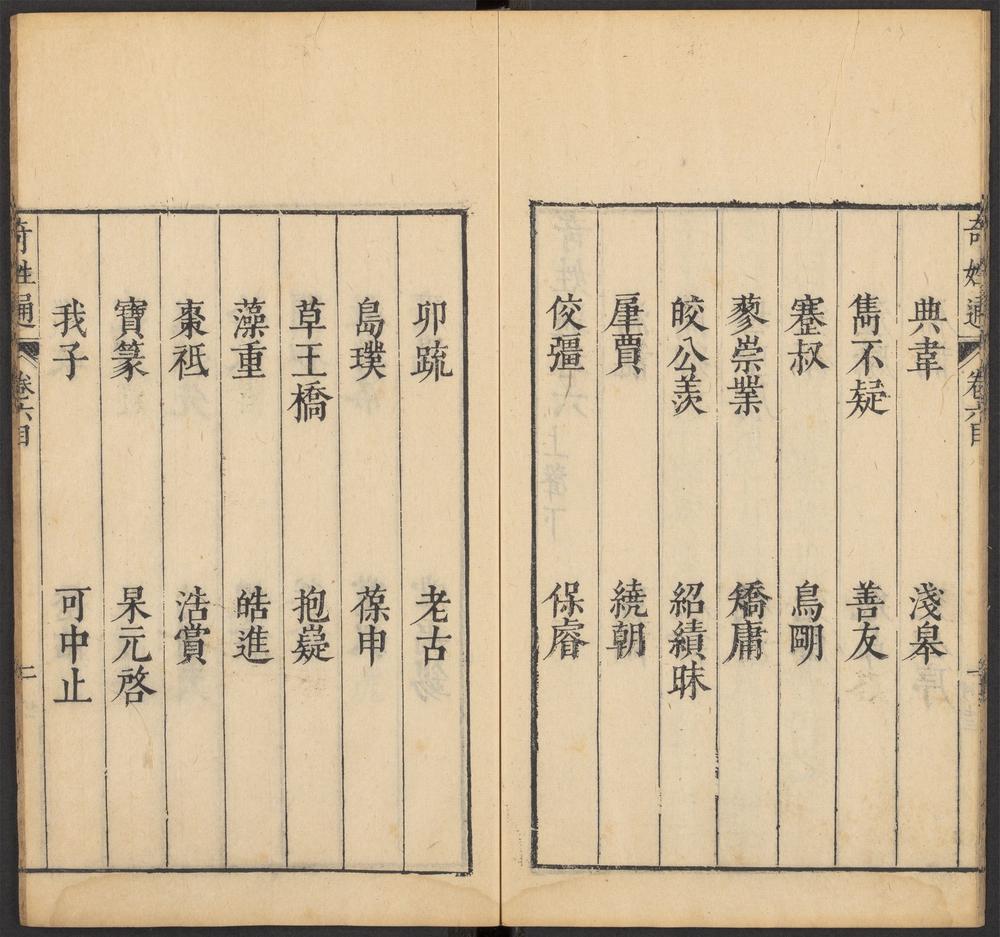 奇姓通 卷六目 一
典韋 淺皋
雋不疑 善友
蹇叔 鳥俷
蓼崇業 矯庸
皎公羨 紹績昧
肁賈 繞朝
佼彊 保睿
卯疏 老古
島璞 葆申
草王橋 抱嶷
藻重 皓進
棗祗 浩賞
寶篆 杲元啓
我子 可中止
奇姓通 卷六目 二